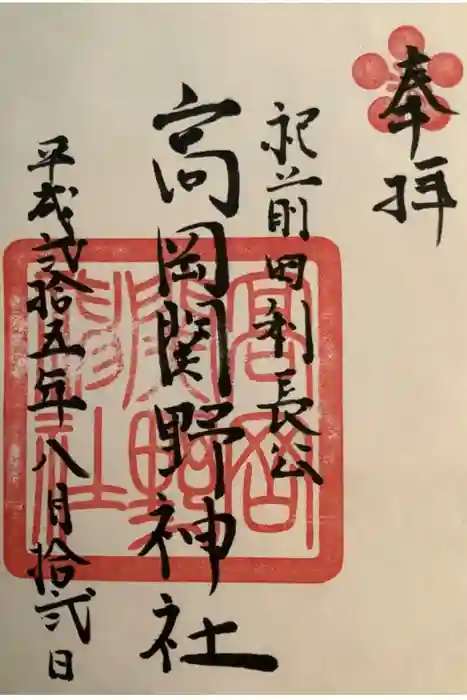 奉拝
祀前田利長公
高岡関野神社
平成弐拾五年八月拾弐日
高岡
関野
神社